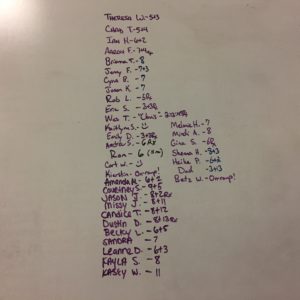 Theresa W. - 5+3
Chad T. - 5+4
Ian H - 6+2
Aaron F. -
Brianna F. - 8
Jenny F. - 7+3
Cyna B. - 7
Jason K. - 7
Rob L. -
Eric S. -
Wes T. - "Chris" -
Kaitlyn S. -
Emily D. -
Andria S. - 6
Ron - 6
Curt W. -
Kiersta - On ramp!
Amanda M. - 6+2
Courtney S. - 9+5
JASON J. - 8+2
Missy J. - 8+11
Candice T. - 8+12
Dustin D. - 8+13
Becky L. - 6+5
SANDRA - 7
Leanne D. - 6+3
KAYLA S. - 8
KASEY W. - 11
Melanie H. - 7
Mark A. - 8
Gina S. -
Shawna H. - 3+3
Heike P. - 6+2
Dad - 3+3
Betz W. - On ramp!